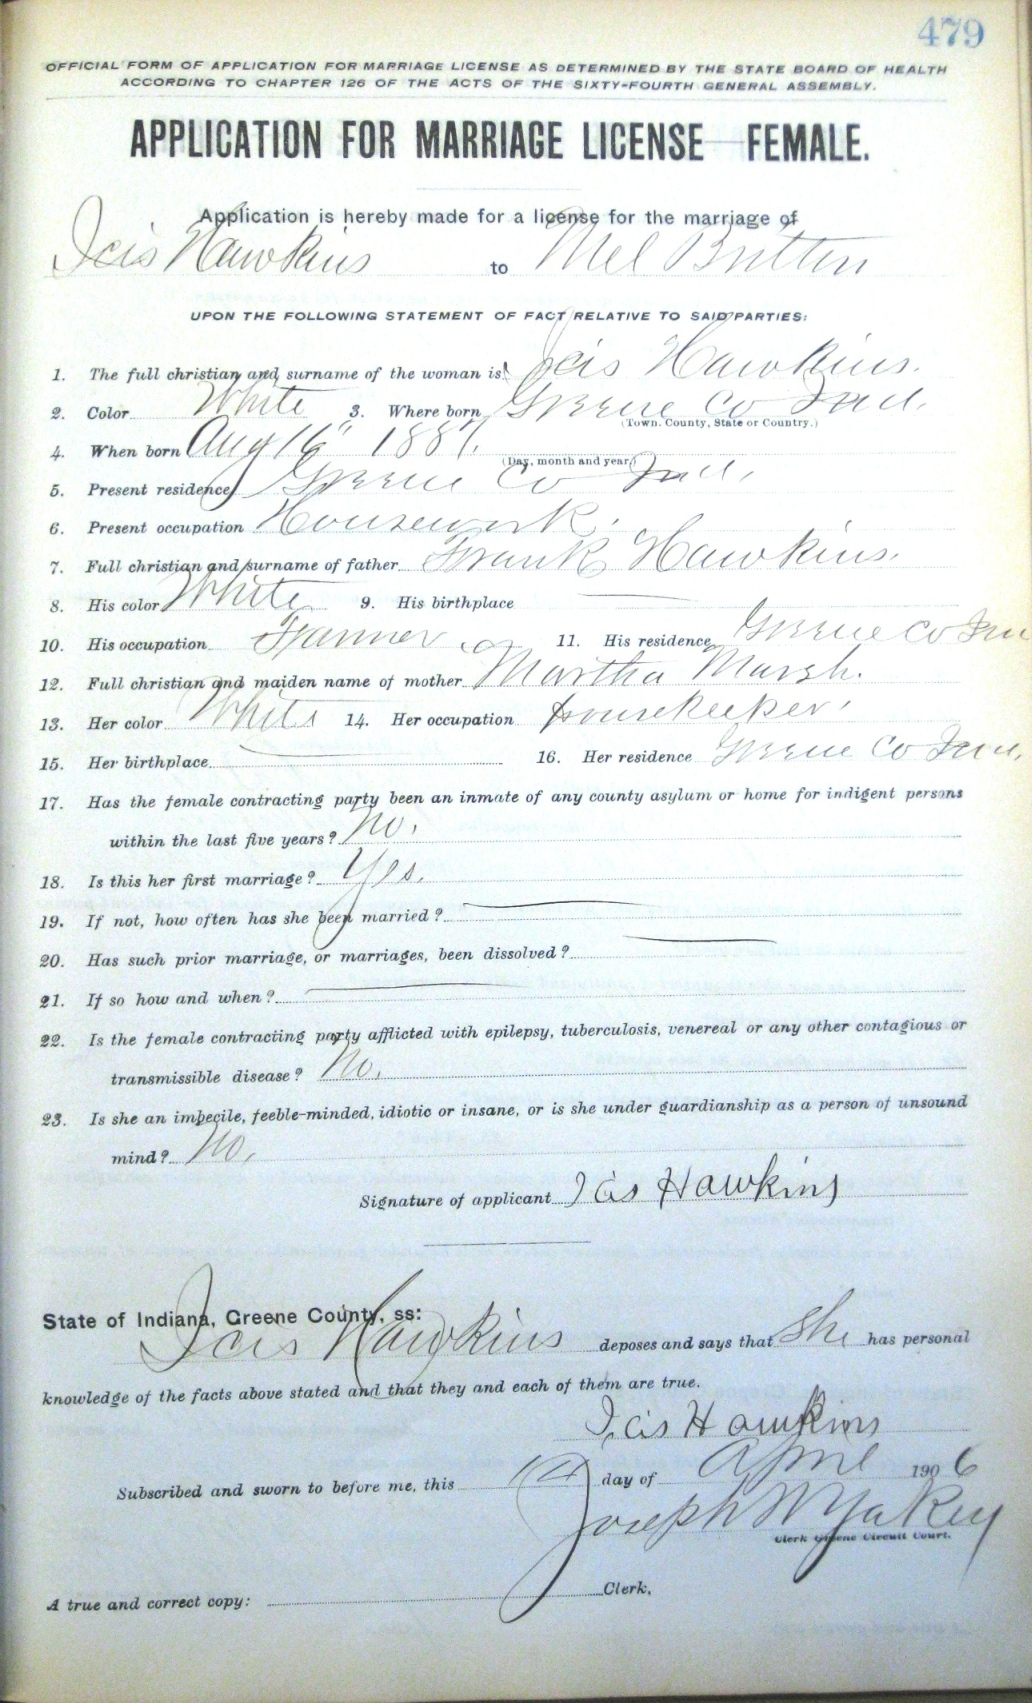 479
OFFICIAL FORM OF APPLICATION FOR MARRIAGE LICENSE AS DETERMINED BY THE STATE BOARD OF HEALTH
ACCORDING TO CHAPTER 126 OF THE ACTS OF THE SIXTY-FOURTH GENERAL ASSEMBLY.
APPLICATION FOR MARRIAGE LICENSE—FEMALE.
Application is hereby made for a license for the marriage of
Icis Hawkins to Mel Britten
UPON THE FOLLOWING STATEMENT OF FACT RELATIVE TO SAID PARTIES:
1. The full christian and surname of the woman is: Icis Hawkins.
2. Color White 3. Where born Greene Co Ind.
(Town. County, State or Country.)
4. When born Aug 16" 1887.
(Day, month and year.)
5. Present residence Greene Co Ind.
6. Present occupation Housework.
7. Full christian and surname of father Frank Hawkins.
8. His color White 9. His birthplace
10. His occupation Farmer 11. His residence Greene Co Ind
12. Full christian and maiden name of mother Martha Marsh.
13. Her color White 14. Her occupation Housekeeper.
15. Her birthplace 16. Her residence Greene Co Ind.
17. Has the female contracting party been an inmate of any county asylum or home for indigent persons
within the last five years? No.
18. Is this her first marriage? Yes.
19. If not, how often has she been married?
20. Has such prior marriage, or marriages, been dissolved?
21. If so how and when?
22. Is the female contracting party afflicted with epilepsy, tuberculosis, venereal or any other contagious or
transmissible disease? No.
23. Is she an imbecile, feeble-minded, idiotic or insane, or is she under guardianship as a person of unsound
mind? No.
Signature of applicant Icis Hawkins
State of Indiana, Greene County, ss:
Icis Hawkins deposes and says that She has personal
knowledge of the facts above stated and that they and each of them are true.
Icis Hawkins
Subscribed and sworn to before me, this day of April 1906
Joseph W Yakey
Clerk Greene Circuit Court.
A true and correct copy: Clerk.